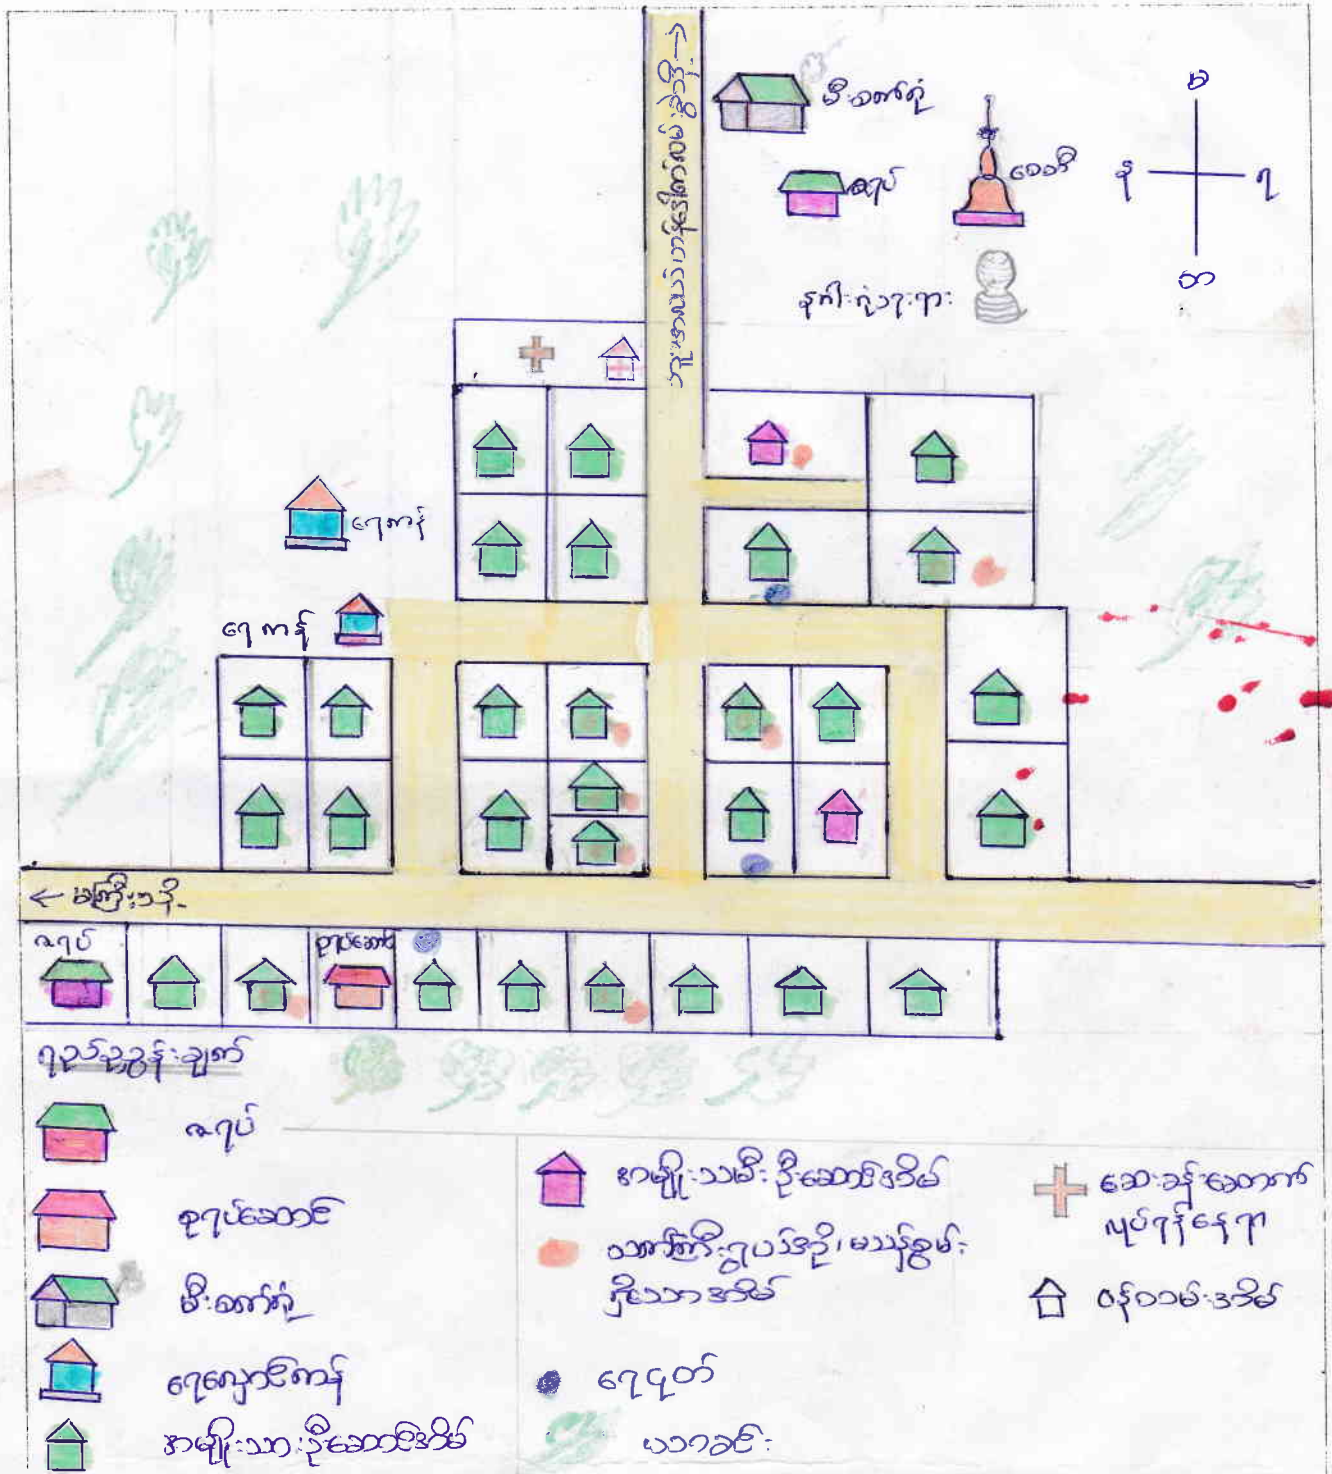 မီးစက်ရုံ
မ
ဇရပ်
စေတီ
န
ရ
တ
နဂါးရုံဘုရား
ရေကန်
ရေကန်
← မကြီးဒသို့
ဇရပ်
စုရပ်ဆောင်
ရည်ညွှန်းချက်
ဇရပ်
စုရပ်ဆောင်
မီးစက်ရုံ
ရေလှောင်ကန်
အမျိုးသားဦးဆောင်အိမ်
အမျိုးသမီးဦးဆောင်အိမ်
သက်ကြီးရွယ်အို၊ မသန်စွမ်း
ရှိသောအိမ်
ရေငုတ်
ယာခင်း
ဆေးခန်းဆောက်
လုပ်ရန်နေရာ
ဝန်ထမ်းအိမ်